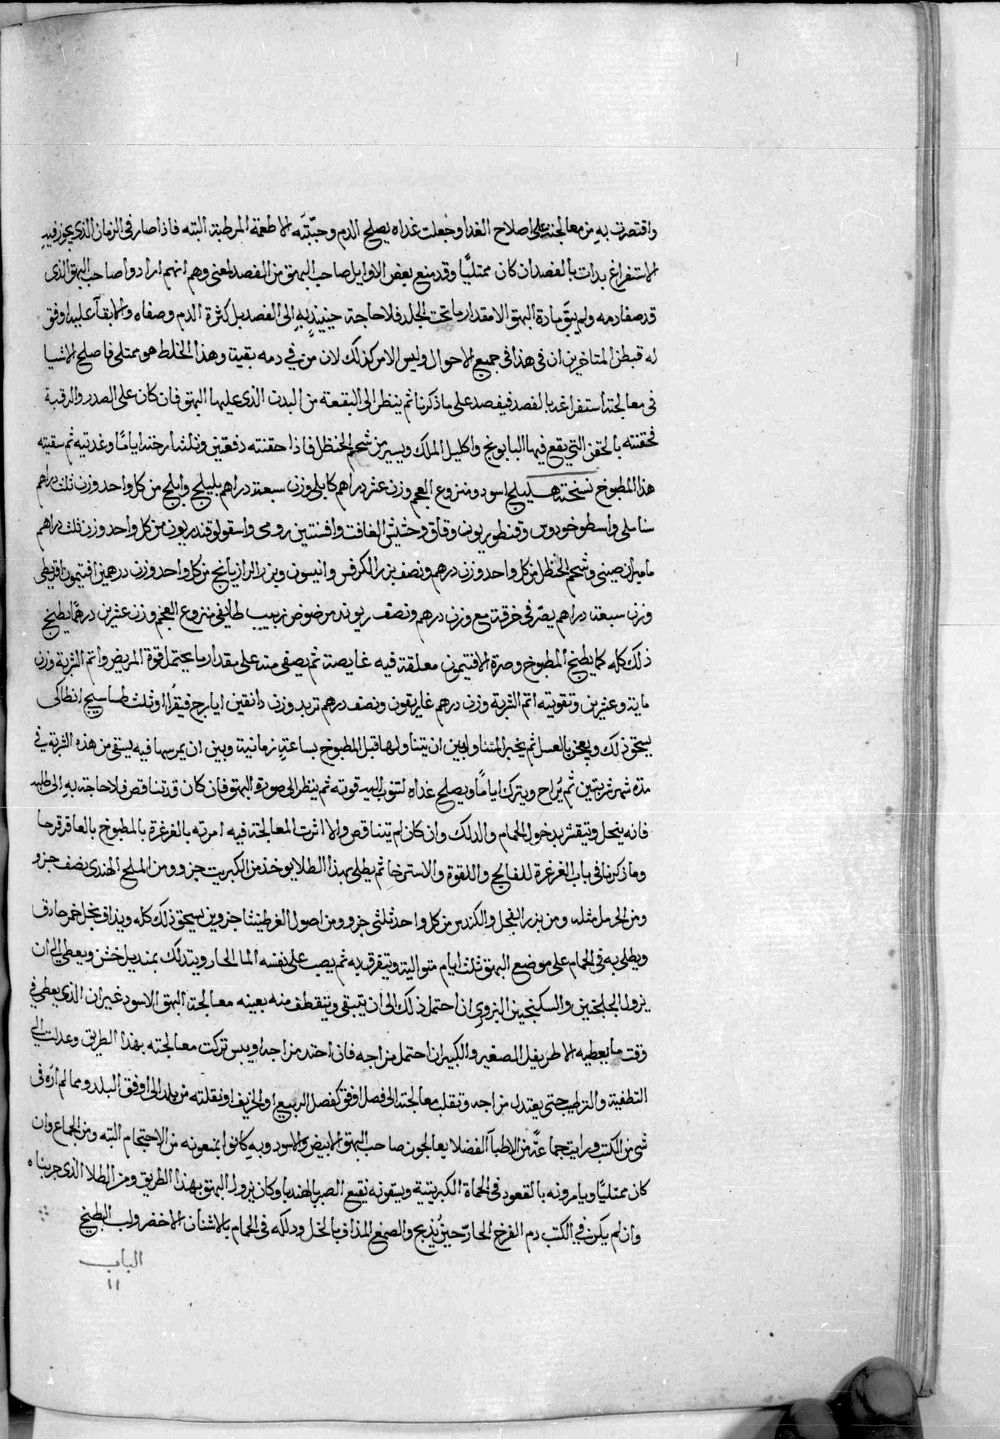 واقتصرت به من معالجته على اصلاح الغذا وجعلت غذاه يصلح الدم وجنّبته الاطعمة المرطبة البته فاذا صار فى الزمان الذى يجوز فيه
الاستفراغ بدات بالفصد ان كان ممتليًا وقد منع بعض الاوايل صاحب البهق من الفصد لمعنى وهم انهم ارادوا صاحب البهق الذى
قد صفا دمه ولم يبق مادة البهق الا مقدار ما تحت الجلد فلا حاجة حينيذ به الى الفصد بل كثرة الدم وصفاه والابقآ عليه اوفق
له فيظن المتاخرين ان فى هذا فى جميع الاحوال وليس الامر كذلك لان من فى دمه بقية وهذا الخلط هو ممتلى فاصلح الاشيا
فى معالجته استفراغه بالفصد فيفصد على ما ذكرنا ثم ينظر الى البقعة من البدن الذى عليها البهق فان كان على الصدر والرقبة
فحقنته بالحقن التى يقع فيها البابونج واكليل الملك ويسير من شحم الحنظل فاذا حقنته دفعتين وثلثا رخته اياما وغذيته ثم سقيته
هذا المطبوخ نسخته هليلج اسود منزوع العجم وزن عشر دراهم كابلى وزن سبعة دراهم بليلج واملج من كل واحد وزن ثلث دراهم
سنا مكى واسطوخودس وقنطوريون دقاق وحشيش الغافت وافسنتين رومى واسقولوقندريون من كل واحد وزن ثلث دراهم
ماميران صينى وشحم الحنظل من كل واحد وزن درهم ونصف بزر الكرفس وانيسون وبزر الرازيانج من كل واحد وزن درهمين افتيمون اقريطى
وزن سبعة دراهم يصرّ فى خرقة مع وزن درهم ونصف ريوند مرضوض زبيب طايفى منزوع العجم وزن عشرين درهمًا يطبخ
ذلك كله كما يطبخ المطبوخ وصرة الافتيمون معلقة فيه غايصة ثم يصفى منه على مقدار ما يحتمل قوة المريض واتم الشربة وزن
ماية وعشرين وتقويته اتم الشربة وزن درهم غاريقون ونصف درهم تربد وزن دانقين ايارج فيقرا وثلث طساسيج انطاكى
يسحق ذلك ويعجن بالعسل ثم يخير المتناول بين ان يتناولها قبل المطبوخ بساعة زمانية وبين ان يمرسها فيه يسقى من هذه الشربة فى
مدة شهر شربتين ثم يُراح ويترك ايامًا ويصلح غذاه لتثوب اليه قوته ثم ينظر الى موضع البهق فان كان قد تناقص فلا حاجة به الى طليه
فانه ينحل ويتقشر بدخول الحمام والدلك وان كان لم يتناقص ولا اثرت المعالجة فيه امرته بالغرغرة بالمطبوخ بالعاقرقرحا
وما ذكرنا فى باب الغرغرة للفالج واللقوة والاسترخا ثم يطلى بهذا الطلا يوخذ من الكبريت جزو ومن الملح الهندى نصف جزو
ومن الحرمل مثله ومن بزر الفجل والكندس من كل واحد ثلثى جزو ومن اصول الغرطنيثا جزوين يسحق ذلك كله ويذاف بخل خمر حاذق
ويطلى به فى الحمام على موضع البهق ثلث ايام متوالية ويتغرق به ثم يصب على نفسه الما الحار ويتدلك بمنديل خشن ويعطى الى ان
يزول الجلنجبين والسكنجبين البزورى ان احتمل ذلك الى ان يتبقى ويتقطف منه بعينه معالجة البهق الاسود غير ان الذى يعطى فى
وقت ما يعطيه الاطريفل الصغير والكبير ان احتمل مزاجه فان احتد مزاجه او يبس تركت معالجته بهذا الطريق وعدلت الى
التطفية والترطيب حتى يعتدل مزاجه ونقلت معالجته الى فصل اوفق كفصل الربيع او الخريف او نقلته من بلد الى اوفق البلد ومما لم اره فى
شى من الكتب ورايت جماعةً من الاطبآ الفضلا يعالجون صاحب البهق الابيض والاسود وبه كانوا يمنعونه من الاحتجام البته ومن الجماع وان
كان ممتليًا ويامرونه بالقعود فى الحماة الكبريتية ويسقونه نقيع الصبر بالهندبا وكان يزول البهق بهذا الطريق ومن الطلا الذى جربناه
وان لم يكن فى الكتب دم الفرخ الحارّ حين يُذبح والصمغ المذاف بالخل ودلكه فى الحمام بالاشنان الاخضر ولب البطيخ
الباب
١١